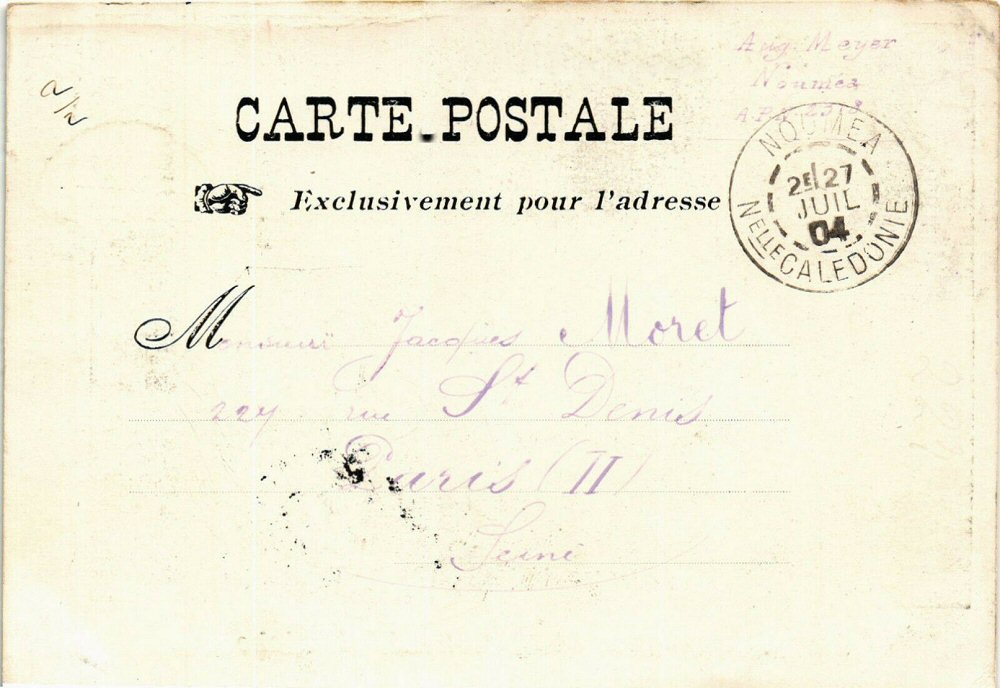 Aug. Meyer
Nouméa
2/2
CARTE POSTALE
Exclusivement pour l'adresse
NOUMEA
2E 27
JUIL
04
NELLE CALEDONIE
Monsieur Jacques Moret
227 rue St Denis
Paris (II)
Seine